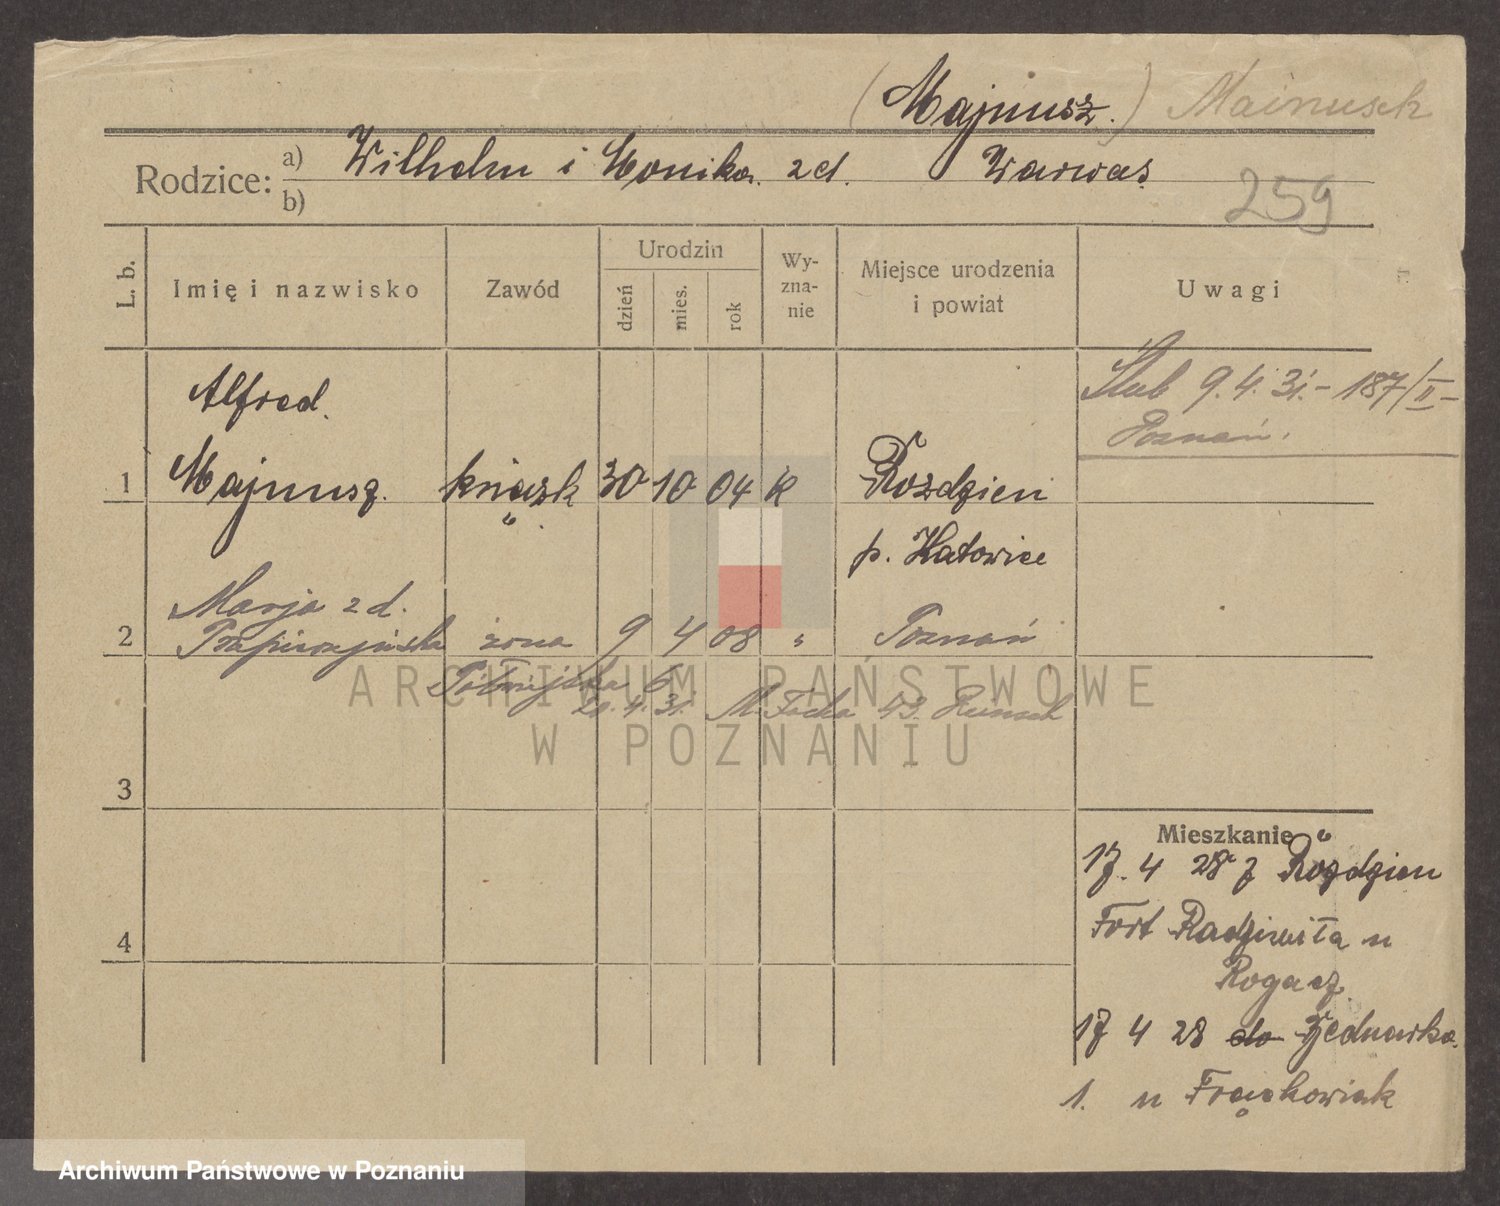 (Majnusz.) Mainusch
Rodzice: a) Wilhelm i Monika zd. Warwas
b)
259
L. b.
Imię i nazwisko
Zawód
Urodzin
dzień
mies.
rok
Wy-
zna-
nie
Miejsce urodzenia
i powiat
Uwagi
Ślub 9.4.31.- 187/II-
Poznań.
Alfred
1 Majnusz. 30 10 04 k Rozdzień
p. Katowice
Marja zd.
2 żona 9 4 08 " Poznań
Półwiejska 6
20.4.31. M. Focha 43.
ARCHIWUM PAŃSTWOWE
W POZNANIU
3
Mieszkanie
17. 4 28 z Rozdzien
4 Fort Radziwiła u
Rogacz
17 4 28 do
1. u Frąckowiak
Archiwum Państwowe w Poznaniu